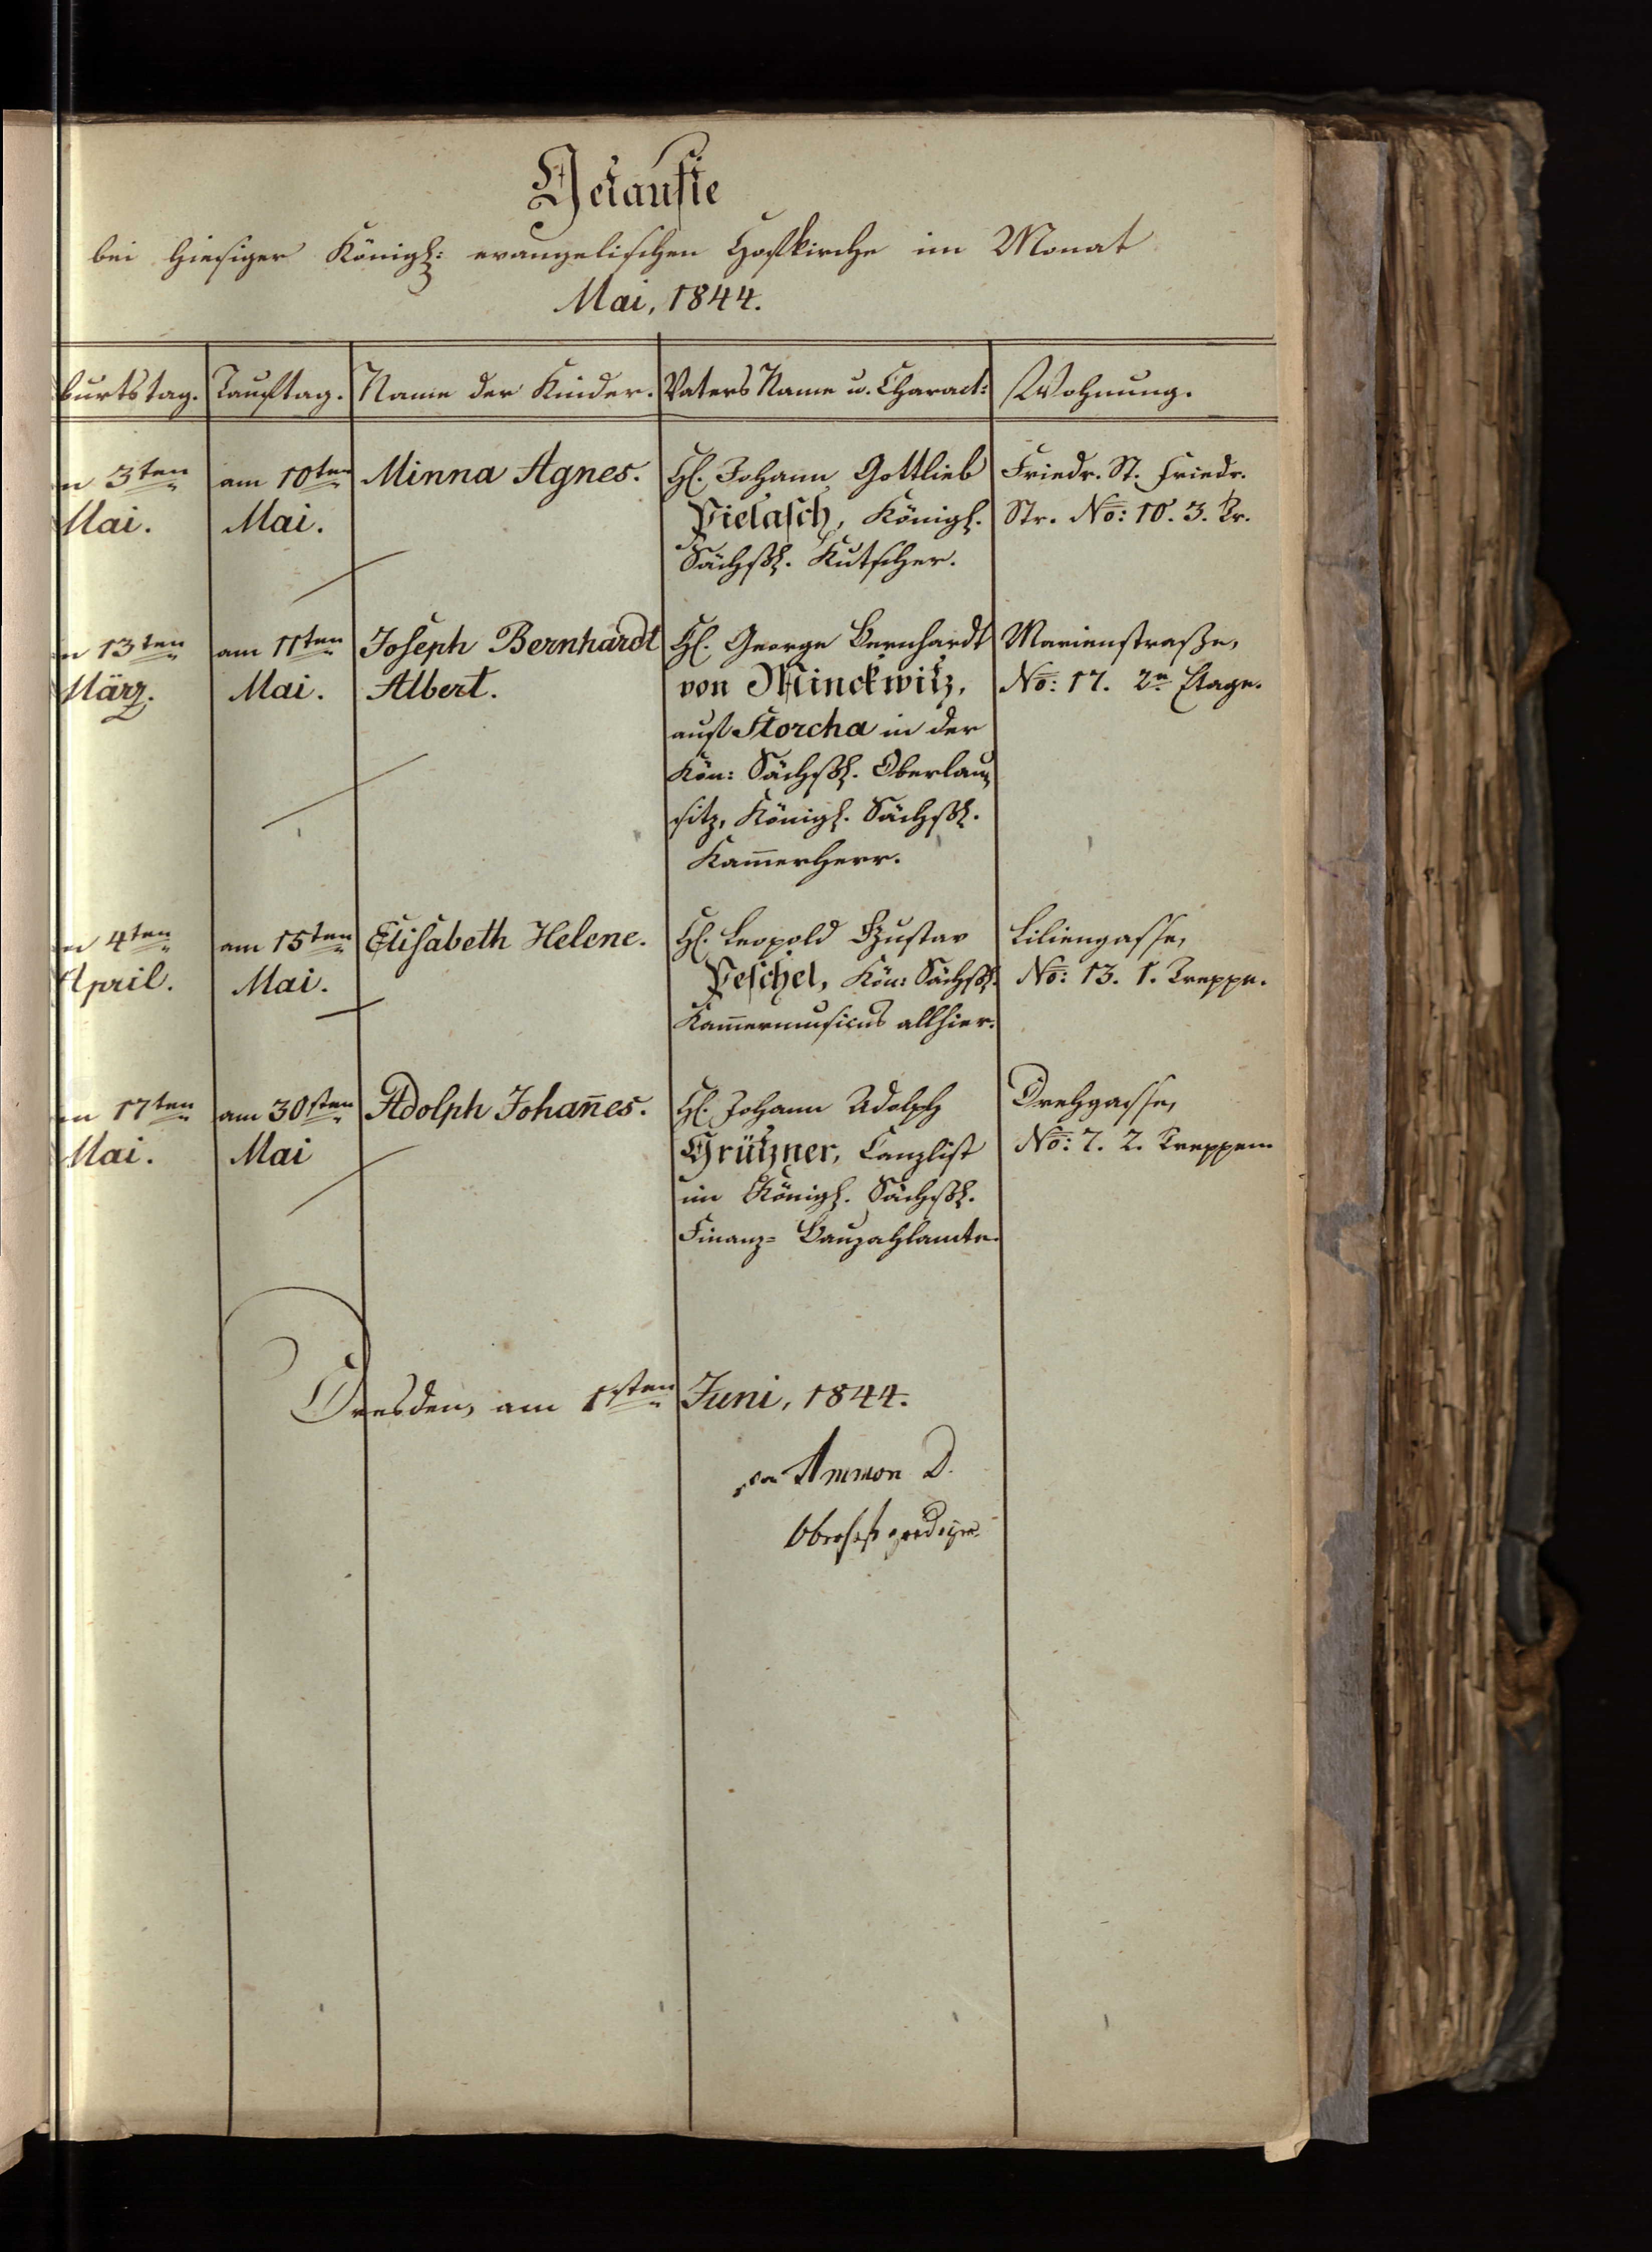 Getaufte
bei hiesiger Königl: evangelischen Hofkirche im Monat
Mai, 1844.
burtstag. Tauftag. Name der Kinder. Vaters Name u. Charact: Wohnung.
n 3ten am 10ten Minna Agnes. H. Johann Gottlieb Friedr. St. Friedr.
Mai. Mai. Pielasch, Königl. Str. No: 10. 3. Tr.
Sächß. Kutscher.
n 13ten am 11ten Joseph Bernhardt H. George Bernhardt Marienstraße,
März. Mai. Albert. von Minckwitz, No: 17. 2e Etage.
auf Storcha in der
Kön: Sächß. Oberlau-
sitz, Königl. Sächß.
Kam̄erherr.
n 4ten am 15ten Elisabeth Helene. H. Leopold Gustav Liliengasse,
April. Mai. Peschel, Kön: Sächß. No: 13. 1. Treppe.
Kam̄ermusicus allhier.
n 17ten am 30sten Adolph Johan̄es. H. Johann Adolph Drehgasse,
Mai. Mai Grützner, Canzlist No: 7. 2. Treppen
im Königl. Sächß.
Finanz- Bauzahlamte.
Dresden, am 1sten Juni, 1844.
von Ammon D.
Oberhofprediger